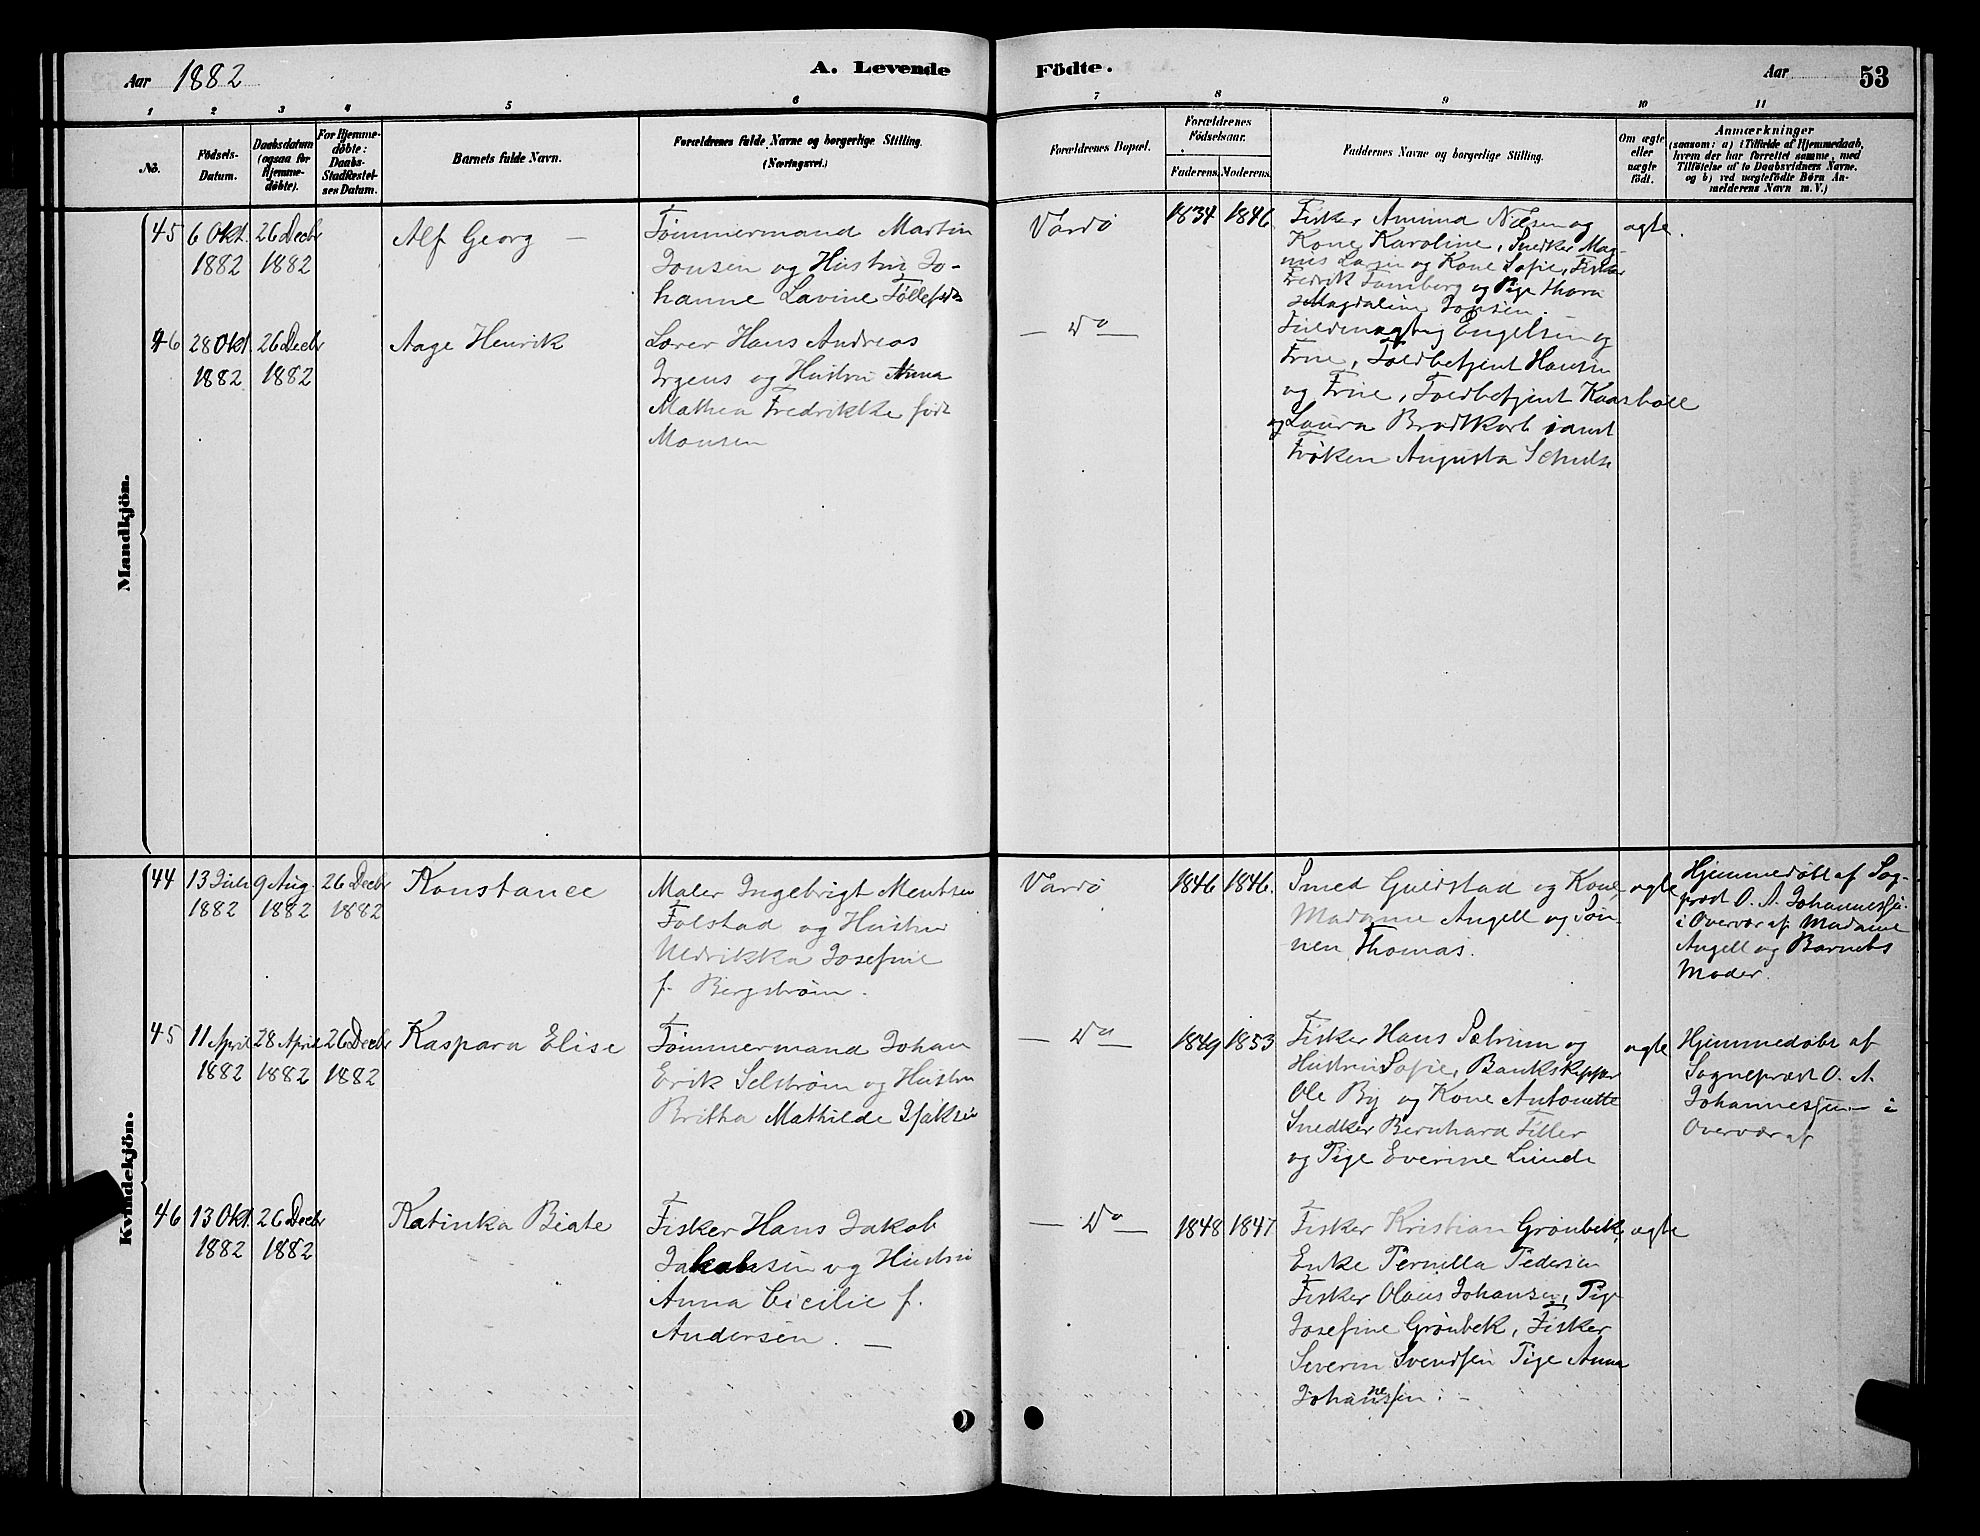 Aar 1882
A. Levende
Födte.
Aar
53
1 2 3 4 5 6 7 8 9 10 11
No.
Födsels-
Datum.
Daabsdatum
(ogsaa for
Hjemme-
döbte).
For Hjemme-
döbte:
Daabs-
Stadfæstel-
ses Datum.
Barnets fulde Navn.
Forældrenes fulde Navne og borgerlige Stilling.
(Næringsvei.)
Forældrenes Bopæl.
Forældrenes
Födselsaar.
Faderens. Moderens.
Faddernes Navne og borgerlige Stilling.
Om ægte
eller
uægte
født.
Anmærkninger
(saasom: a) i Tilfælde af Hjemmedaab,
hvem der har forrettet samme, med
Tilföielse af to Daabsvidners Navne.
og b) ved uægtefödte Børn An-
melderens Navn m. V.)
Mandkjön.
45
6 Okt.
1882
26 Decbr
1882
Alf Georg —
Tømmermand Martin
Jonsen og Hustru Jo-
hanne Lavine
Vardø
1834
1846
Fisker Amund Nilsen og
Kone Karoline, Snedker Mag-
nus og Kone Sofie, Fisker
Fredrik og Pige Thora
Magdaline Jonsen.
ægte.
46
28 Okt.
1882
26 Decbr
1882
Aage Henrik
Lærer Hans Andreas
Irgens og Hustru Anna
Mathea Fredrikke født
Monsen
— Do —
Fuldmægtig Engelsen og
Frue, Toldbetjent Hansen
og Frue, Toldbetjent Kaarbøll
og Laura Brodtkorb samt
Frøken Augusta
Kvindekjön.
44
13 Juli
1882
9 Aug.
1882
26 Decbr
1882
Konstance
Maler Ingebrigt Mentsen
Folstad og Hustru
Uldrikka Josefine
f. Bergstrøm.
Vardø
1846
1846.
Smed Guldstad og Kone,
Madame Angell og Søn-
nen Thomas.
ægte
Hjemmedøbt af Sog-
præst O. A. Johannessen
i Overvær af Madame
Angell og Barnets
Moder.
45
11 April
1882
28 April
1882
26 Decbr
1882
Kaspara Elise
Tømmermand Johan
Erik Selstrøm og Hustru
Britha Mathilde Isaksen
— Do —
1849
1853
Fisker Hans Sætrum og
Hustru Sofie, Bankskipper
Ole By og Kone Antonette
Snedker Bernhard Tiller
og Pige Everine Lunde
ægte
Hjemmedøbt af
Sognepræst O. A.
Johannessen — i
Overvær af
46
13 Okt.
1882
26 Decbr
1882
Katinka Beate
Fisker Hans Jakob
Jakobsen og Hustru
Anna Cicilie f.
Andersen. —
— Do —
1848
1847
Fisker Kristian Grønbek,
Enke Pernilla Pedersen
Fisker Olaus Johansen, Pige
Josefine Grønbek, Fisker
Severin Svendsen Pige Anna
Johannessen. —
ægte